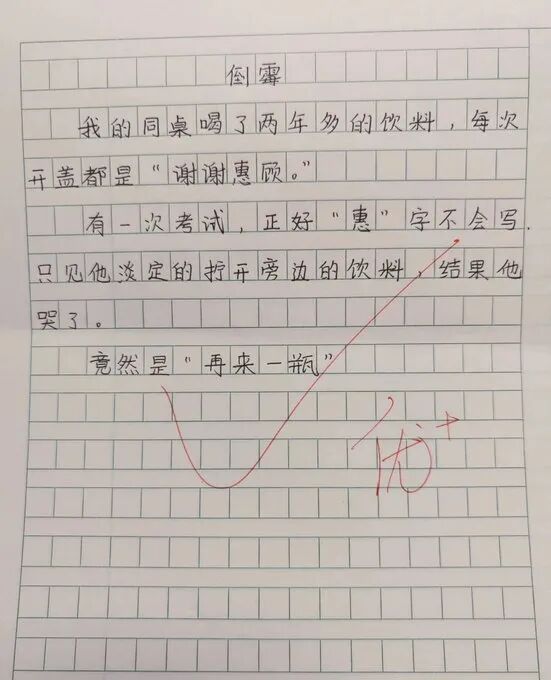 倒霉
我的同桌喝了两年多的饮料，每次
开盖都是“谢谢惠顾。”
有一次考试，正好“惠”字不会写.
只见他淡定的拧开旁边的饮料，结果他
哭了。
竟然是“再来一瓶”
优+